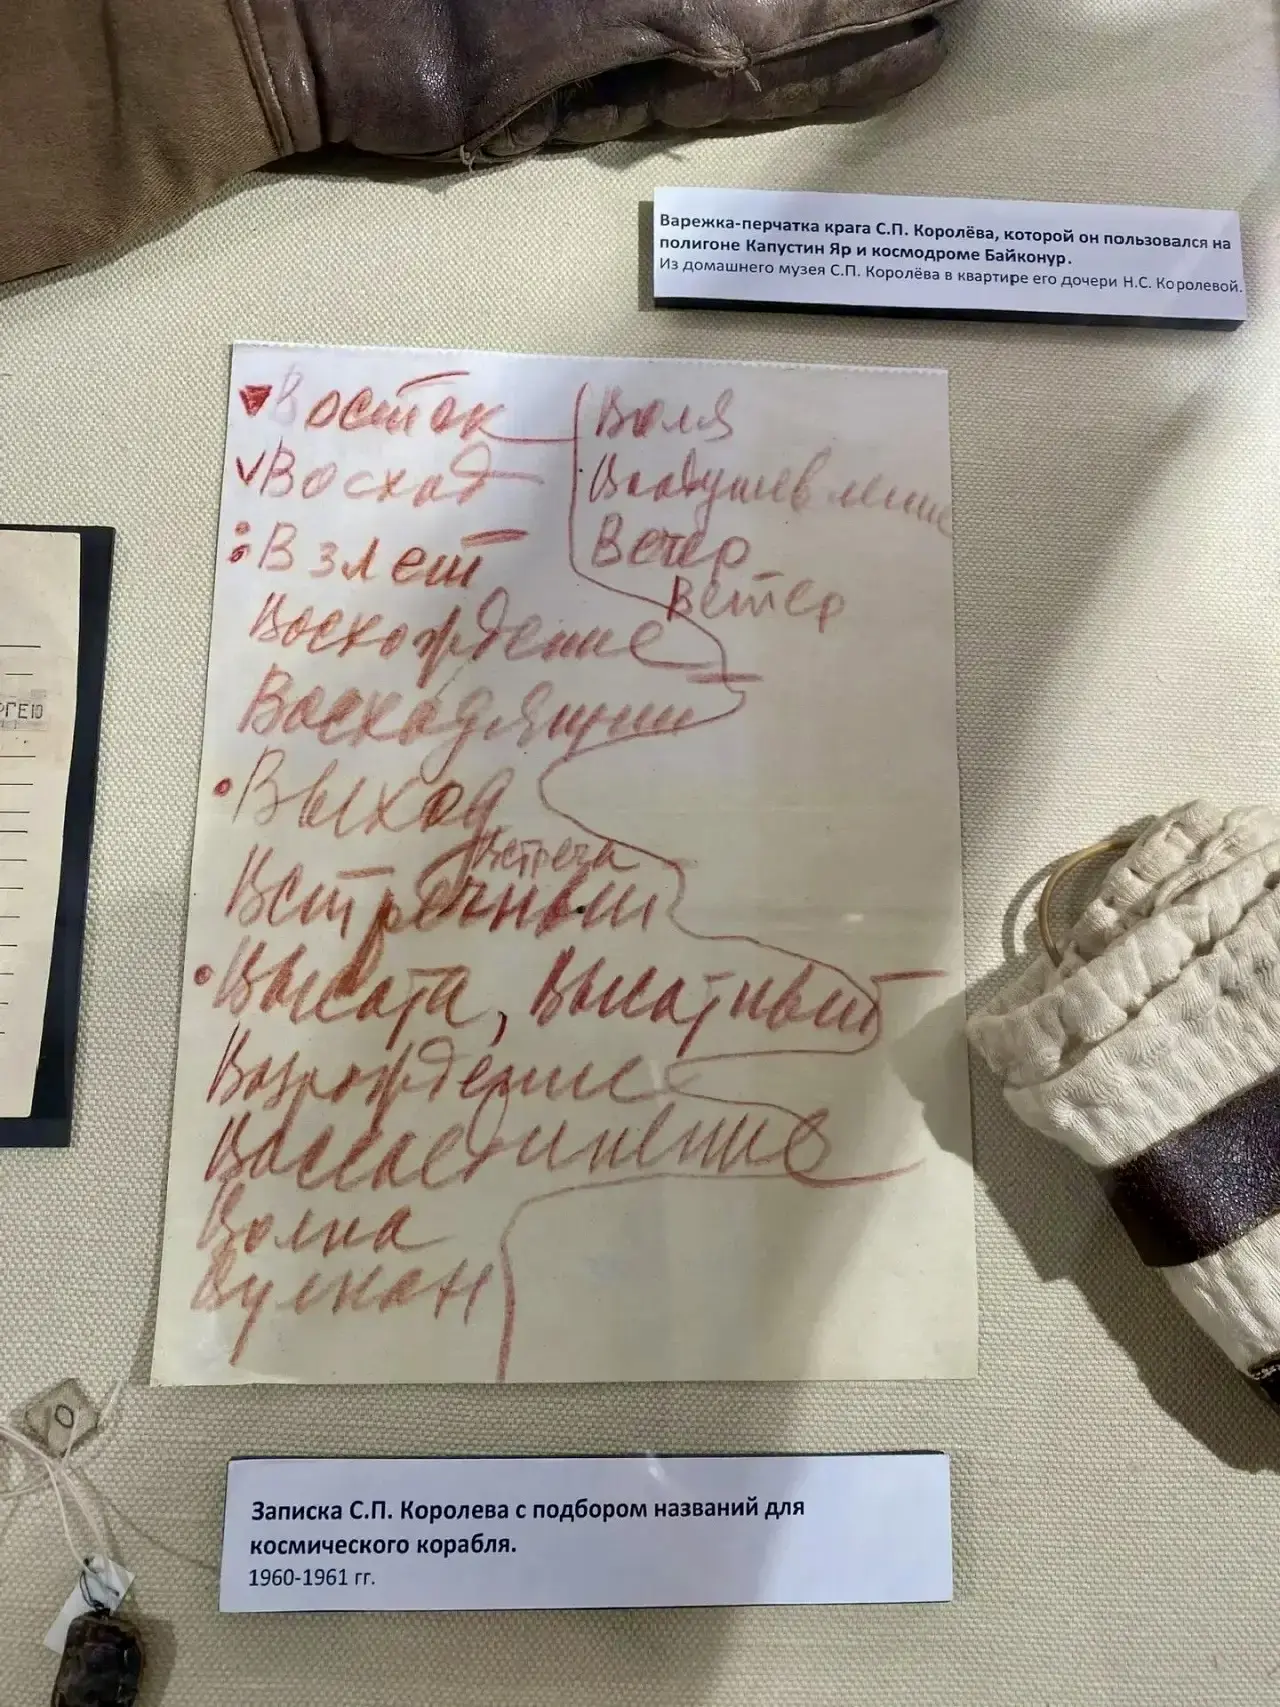 Варежка-перчатка крага С.П. Королёва, которой он пользовался на
полигоне Капустин Яр и космодроме Байконур.
Из домашнего музея С.П. Королёва в квартире его дочери Н.С. Королевой.
Восток
Восход
Взлет
Восхождение
Восходящий
Выход
Встреча
Встречный
Высота, Высотный
Возрождение
Воссоединение
Волна
Вулкан
Воля
Воодушевление
Вечер
Ветер
РГЕЮ
Записка С.П. Королева с подбором названий для
космического корабля.
1960-1961 гг.